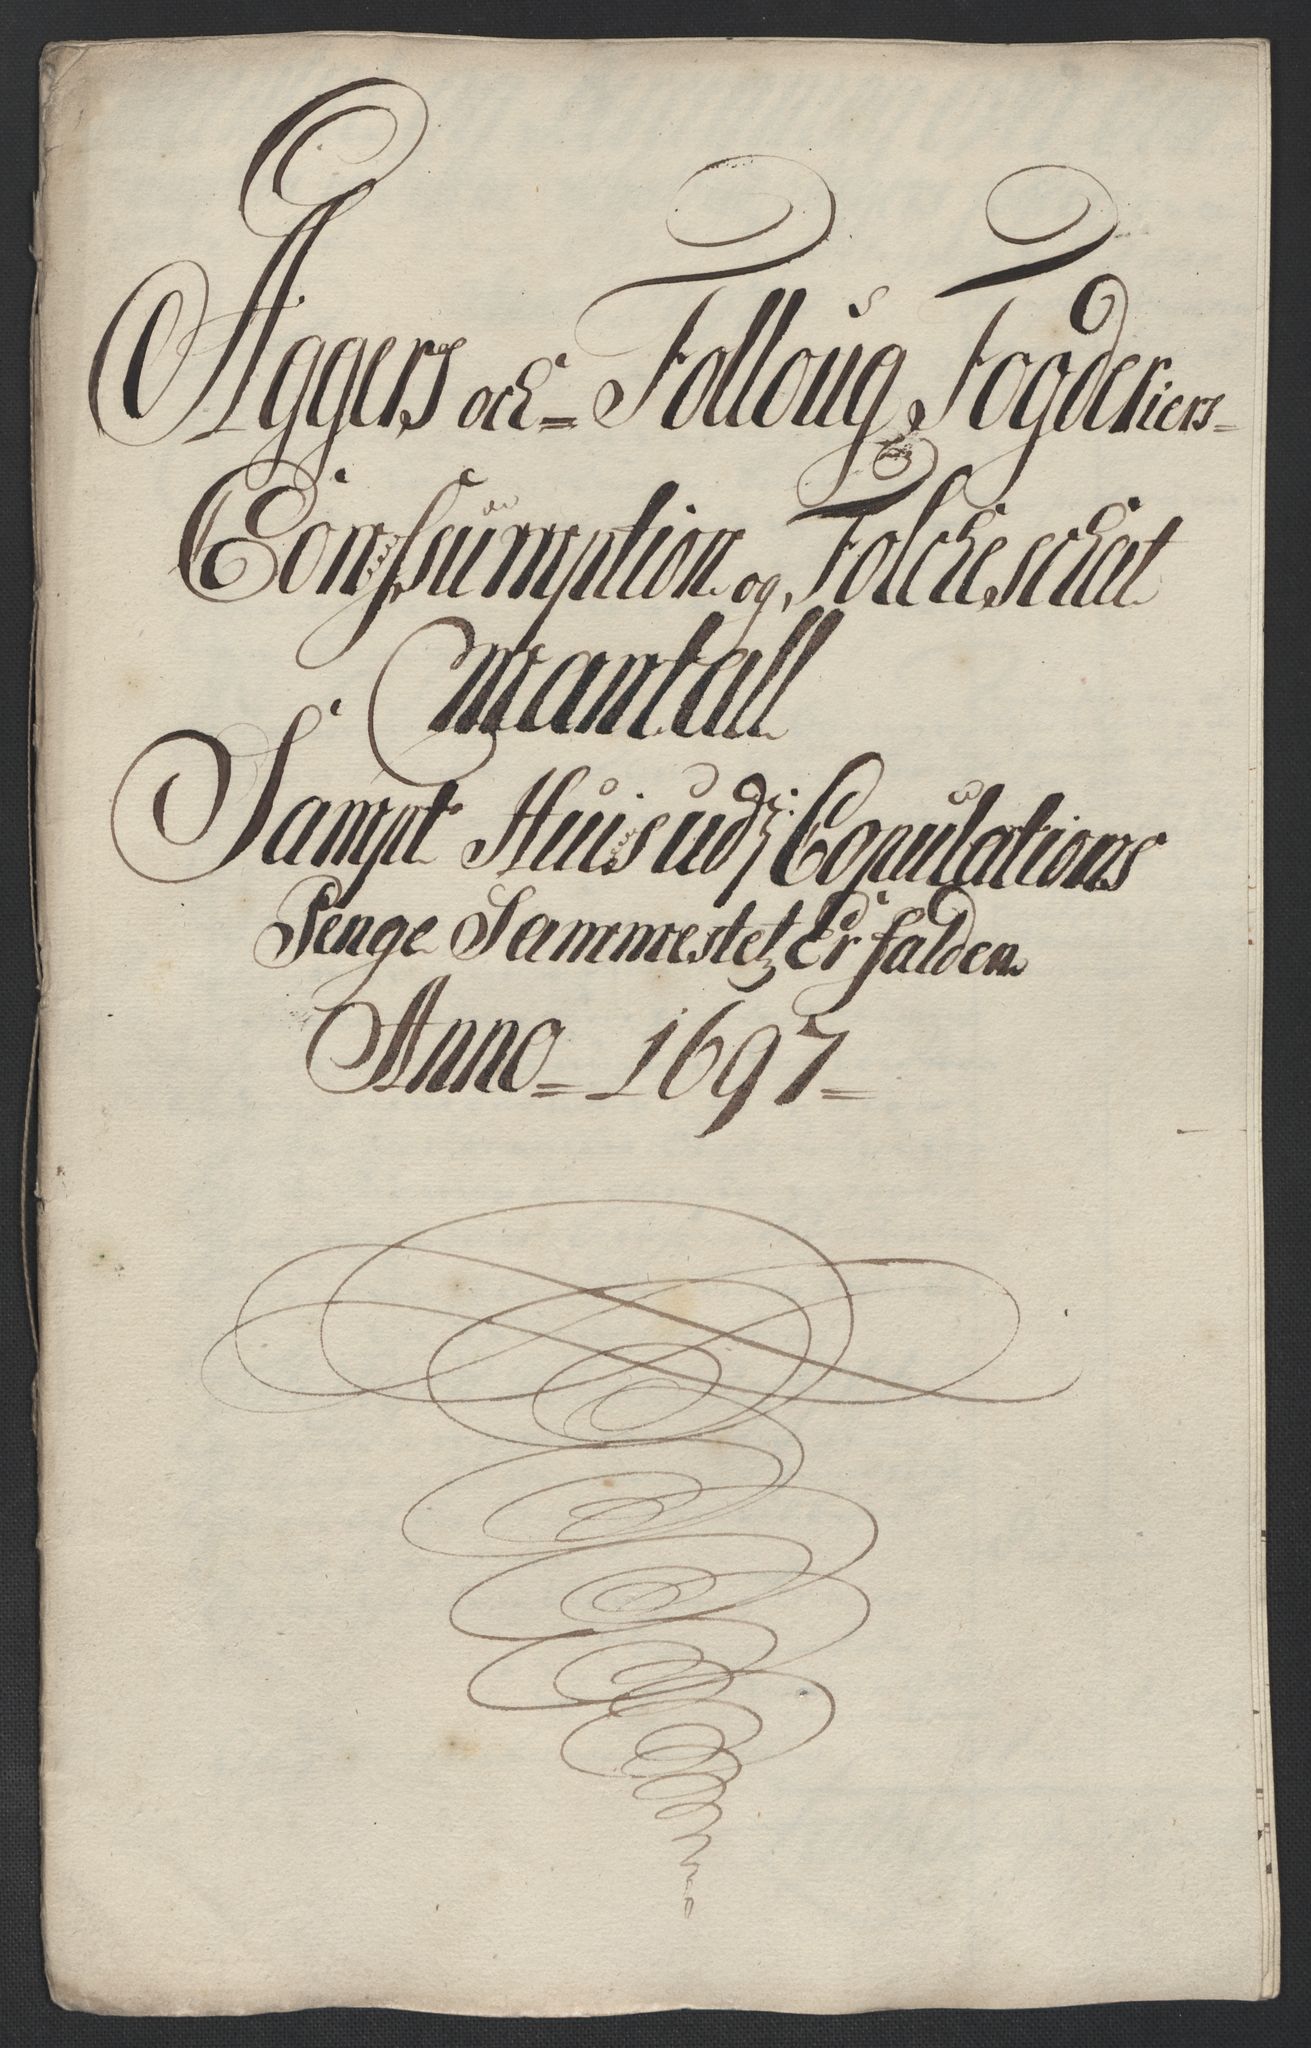 Aggers och = Follougs Fogderiers =
Consumption og Folcheschat
Mantall
Sampt Huis udj Copulations
Penge Sammestetz Er falden
Anno = 1697 =